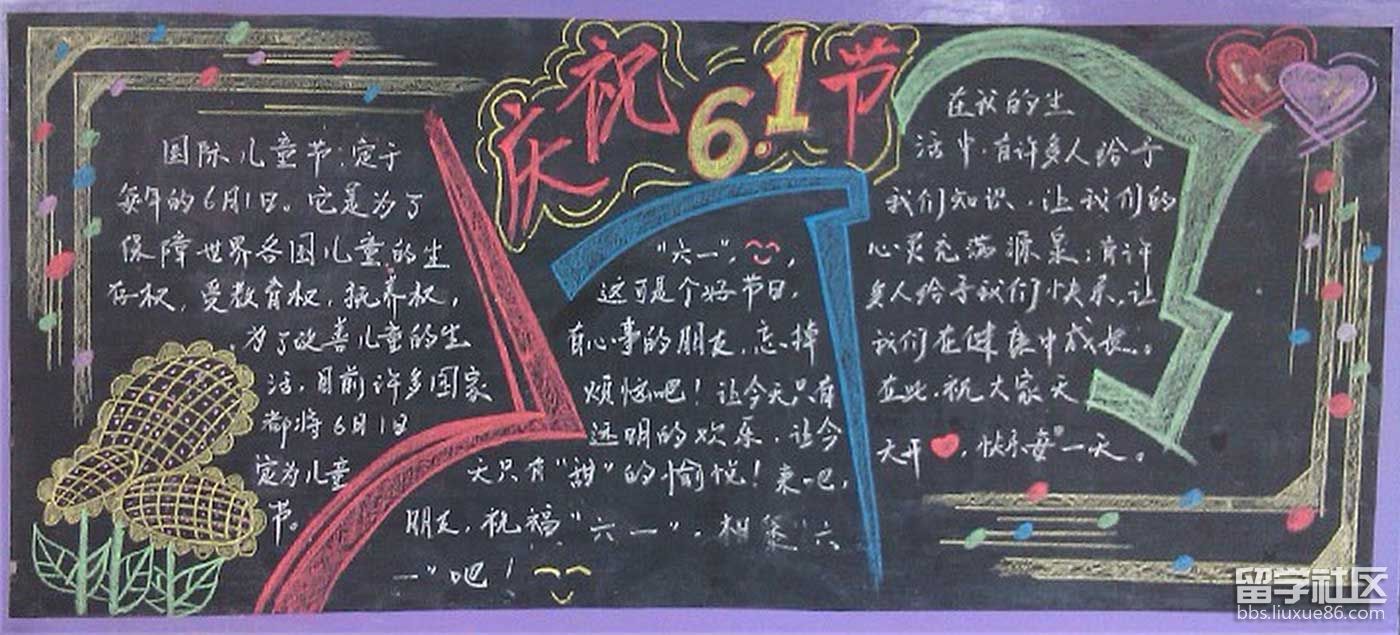 庆祝6.1节
国际儿童节:定于
每年的6月1日。它是为了
保障世界各国儿童的生
存权,受教育权,抚养权,
为了改善儿童的生
活,目前许多国家
都将6月1日
定为儿童
节。
"六一",
这可是个好节日,
有心事的朋友,忘掉
烦恼吧!让今天只有
透明的欢乐,让今
天只有"甜"的愉悦!来吧,
朋友,祝福"六一",相聚"六
一"吧!
在我的生
活中,有许多人给予
我们知识,让我们的
心灵充满源泉;有许
多人给予我们快乐,让
我们在健康中成长。
在此,祝大家天
天开,快乐每一天。
留学社区
bbs.liuxue86.com